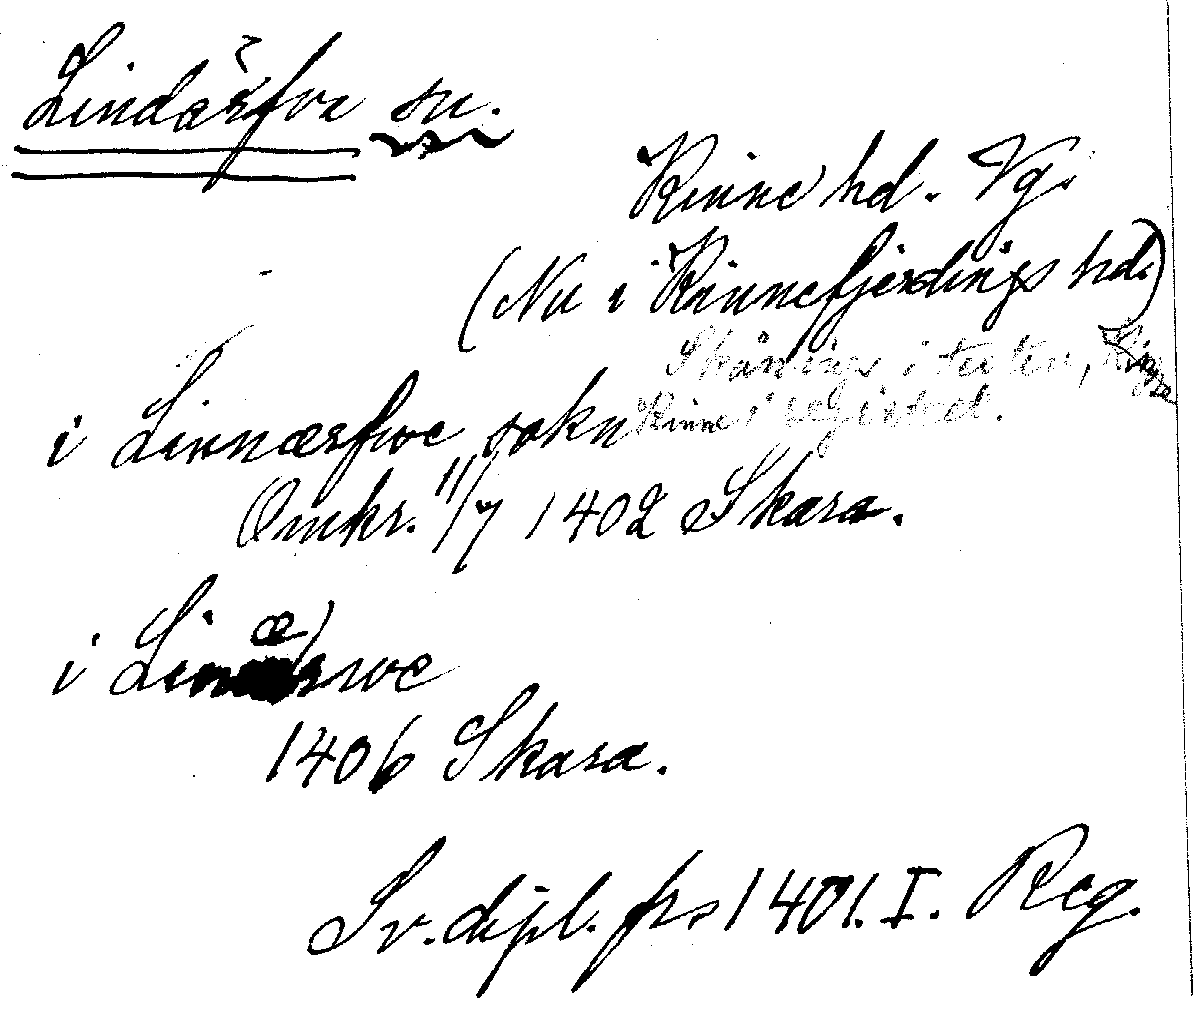 Lindärfva sn.
Kinne hd. Vg.
(Nu i Kinnefjerdings hd.)
Skånings i texten,
Kinne i registred.
i Linnærfwe sokn
Omkr. 11/7 1402 Skara.
i Linærwe
1406 Skara.
Sv. dipl. frs 1401. I. Reg.